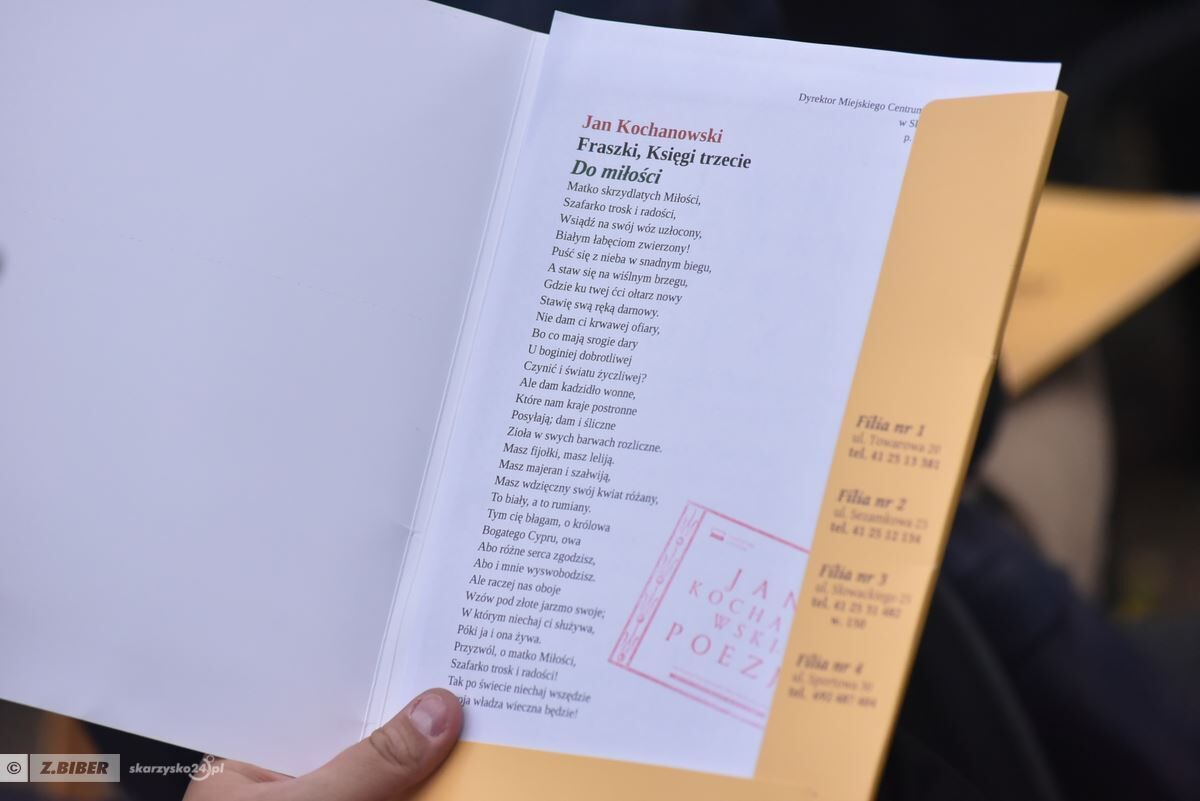 Dyrektor Miejskiego Centrum
w
p.
Jan Kochanowski
Fraszki, Księgi trzecie
Do miłości
Matko skrzydlatych Miłości,
Szafarko trosk i radości,
Wsiądź na swój wóz uzłocony,
Białym łabęciom zwierzony!
Puść się z nieba w snadnym biegu,
A staw się na wiślnym brzegu,
Gdzie ku twej ćci ołtarz nowy
Stawię swą ręką darnowy.
Nie dam ci krwawej ofiary,
Bo co mają srogie dary
U boginiej dobrotliwej
Czynić i światu życzliwej?
Ale dam kadzidło wonne,
Które nam kraje postronne
Posyłają; dam i śliczne
Zioła w swych barwach rozliczne.
Masz fijołki, masz leliją.
Masz majeran i szałwiją,
Masz wdzięczny swój kwiat różany,
To biały, a to rumiany.
Tym cię błagam, o królowa
Bogatego Cypru, owa
Abo różne serca zgodzisz,
Abo i mnie wyswobodzisz.
Ale raczej nas oboje
Wzów pod złote jarzmo swoje;
W którym niechaj ci służywa,
Póki ja i ona żywa.
Przyzwól, o matko Miłości,
Szafarko trosk i radości!
Tak po świecie niechaj wszędzie
oja władza wieczna będzie!
JAN
KOCHA
WSKI
POEZ
Filia nr 1
ul. Towarowa 20
tel. 41 25 13 381
Filia nr 2
ul. Sezamkowa 23
tel. 41 25 12 134
Filia nr 3
ul. Słowackiego 25
tel. 41 25 31 482
w. 150
Filia nr 4
ul. Sportowa 30
tel. 492 487 484
© Z.BIBER skarzysko24.pl